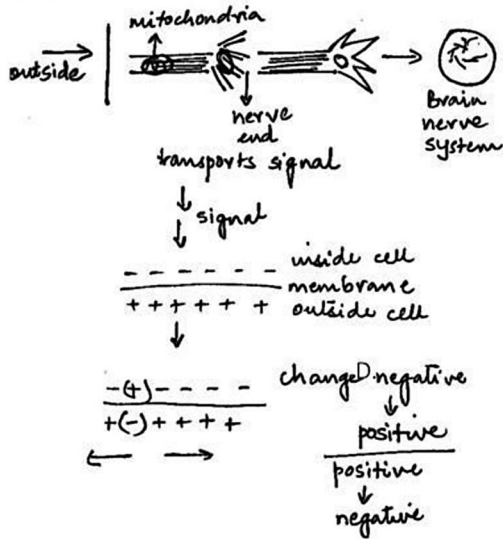 mitochondria
outside
nerve
end
transports signal
Brain
nerve
system
signal
- - - - - - inside cell
membrane
+ + + + + + outside cell
-(+)- - - - changeD.negative
positive
+(-)+ + + +
positive
negative